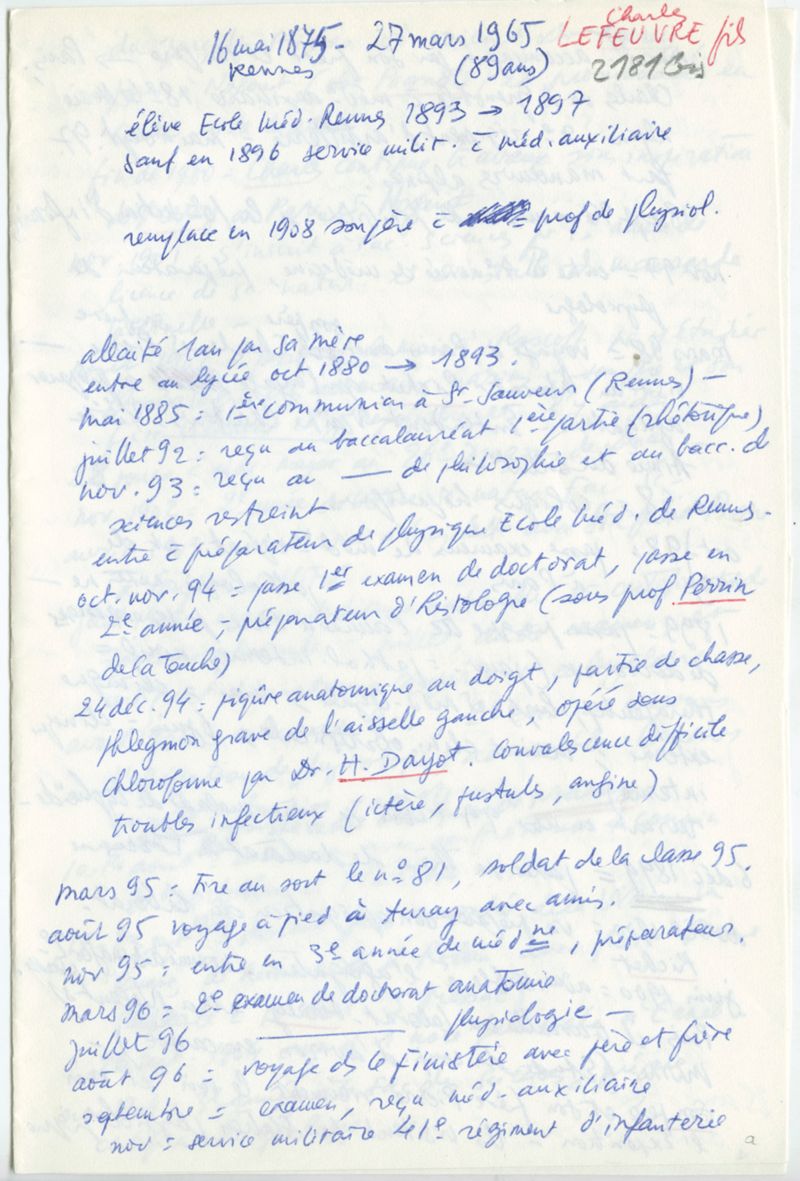 Charles
LEFEUVRE fils
2181 bis
16 mai 1875 - 27 mars 1965
Rennes (89 ans)
élève Ecole Méd. Rennes 1893 → 1897
sauf en 1896 service milit. c̄ méd. auxiliaire
remplace en 1908 son père c̄ prof de physiol.
allaité 1 an par sa mère
entre au lycée oct 1880 → 1893.
mai 1885 = 1ère communion à St-Sauveur (Rennes) —
juillet 92 = reçu au baccalauréat 1ère partie (rhétorique)
nov. 93 = reçu au —— de philosophie et au bacc. de
sciences restreint
entre c̄ préparateur de physique Ecole Méd. de Rennes -
oct. nov. 94 = passe 1er examen de doctorat, passe en
2e année, préparateur d'histologie (sous prof Perrin
de la Touche)
24 déc. 94 = piqûre anatomique au doigt, partie de chasse,
phlegmon grave de l'aisselle gauche, opéré sous
chloroforme par Dr. H. Dayot. Convalescence difficile
troubles infectieux (ictère, pustules, angine)
mars 95 = tire au sort le no 81, soldat de la classe 95.
août 95 voyage à pied à Auray avec amis.
nov 95 = entre en 3e année de médne, préparateur.
mars 96 = 2e examen de doctorat anatomie
juillet 96 ———— physiologie —
août 96 = voyage ds le Finistère avec père et frère
septembre = examen, reçu méd. auxiliaire
nov = service militaire 41e régiment d'infanterie
a